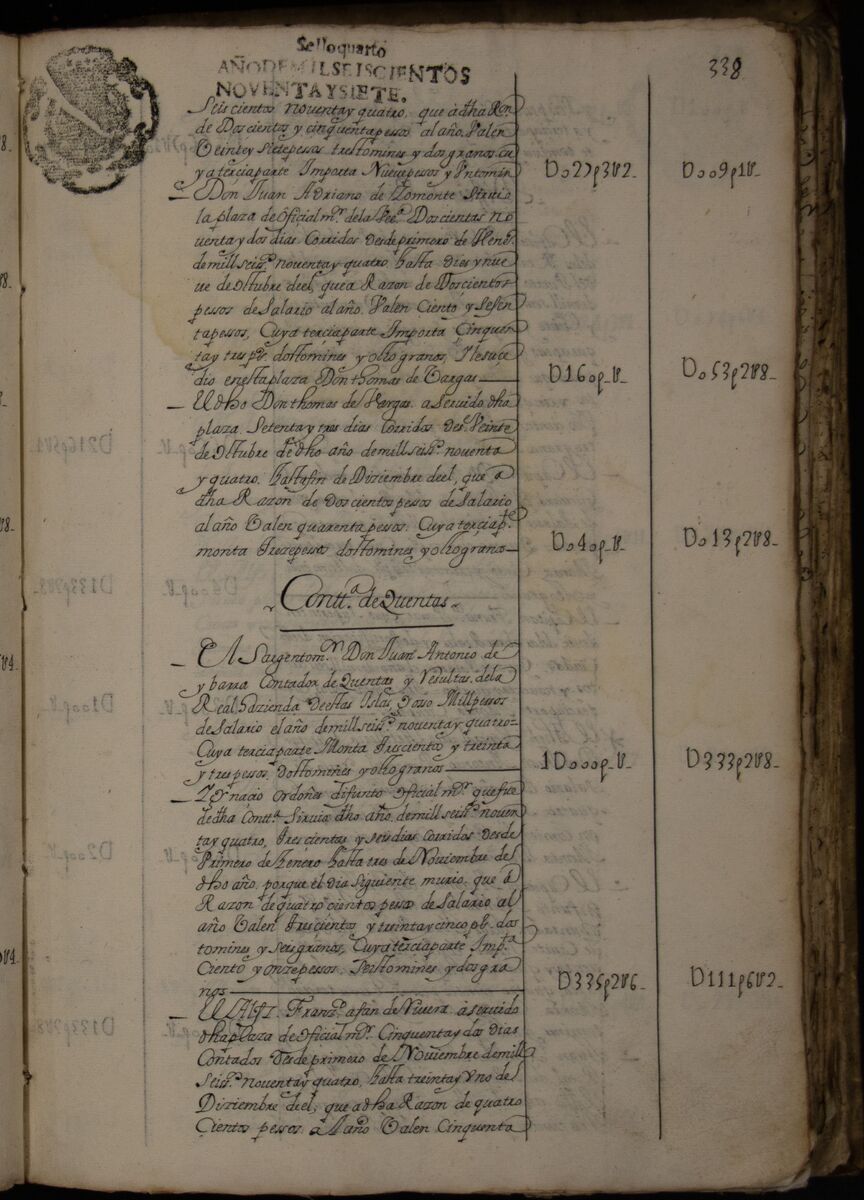 338
Sello quarto
AÑO DE MIL SEISCIENTOS
NOVENTA Y SIETE.
Seiscientos noventa y quatro, que a dha Ron
de Doscientos y cinquenta pesos al año, Valen
Veinte y siete pesos tres tomines y dos granos, cu
ya tercia parte Importa Nueve pesos y Untomin
D027p3U2 D009p1U
Don Juan Adriano de Lomonte siruio
la plaza de oficial mr de la Docientas no
uenta y dos dias Corridos desde primero de Henº
de mill seisºs noventa y quatro, hasta Dies y nue
ue de octubre del, que a Razon de Doscientos
pesos de Salario al año, Valen Ciento y Sesen
ta pessos, Cuya tercia parte Importa Cinquen
ta y tres ps dos tomines y ocho granos, Yle suçe
dio en esta plaza Don thomas de Vargas
D160p_U D053p2U8
El dho Don thomas de Vargas a seruido dha
plaza Setenta y tres dias Corridos Desde Veinte
de octubre de dho año de mill seisºs noventa
y quatro, hasta fin de Diziembre del, que a
dha Razon de Doscientos pesos de Salario
al año Valen quarenta pessos, Cuya tercia pte
monta Treze pesos dos tomines y ocho granos
D040p_U D013p2U8
Contta de Quentas
El Sargento mr Don Juan Antonio de
ybarra Contador de quentas y Resultas de la
Real hazienda de estas Islas, Gozo Mill pesos
de salario el año de mill seisºs noventa y quatro
Cuya tercia parte Monta Trescientos y treinta
y tres pesos, dos tomines y ocho granos
1D000p_U D333p2U8
Ygnacio Ordoñes difunto oficial mr que fue
de dha Contta Siruio dho año de mill seisºs noven
ta y quatro, Trescientos y seis dias Corridos desde
Primero de henero hasta tres de Noviembre del
dho año, porque el dia siguiente murio, que a
Razon de quatrocientos pesos de Salario al
año Valen Trescientos y treinta y cinco ps dos
tomines y seis granos, Cuya tercia parte Impta
Ciento y onze pessos, seis tomines y dos gra
nos
D335p2U6 D111p6U2
El Alfz Franzco afan de Rivera a seruido
dha plaza de oficial mr Cinquenta y dos Dias
Contados desde primero de Noviembre de mill
seisºs noventa y quatro, hasta treinta y Uno de
Diziembre del, que a dha Razon de quatro
Cientos pessos al año Valen Cinquenta